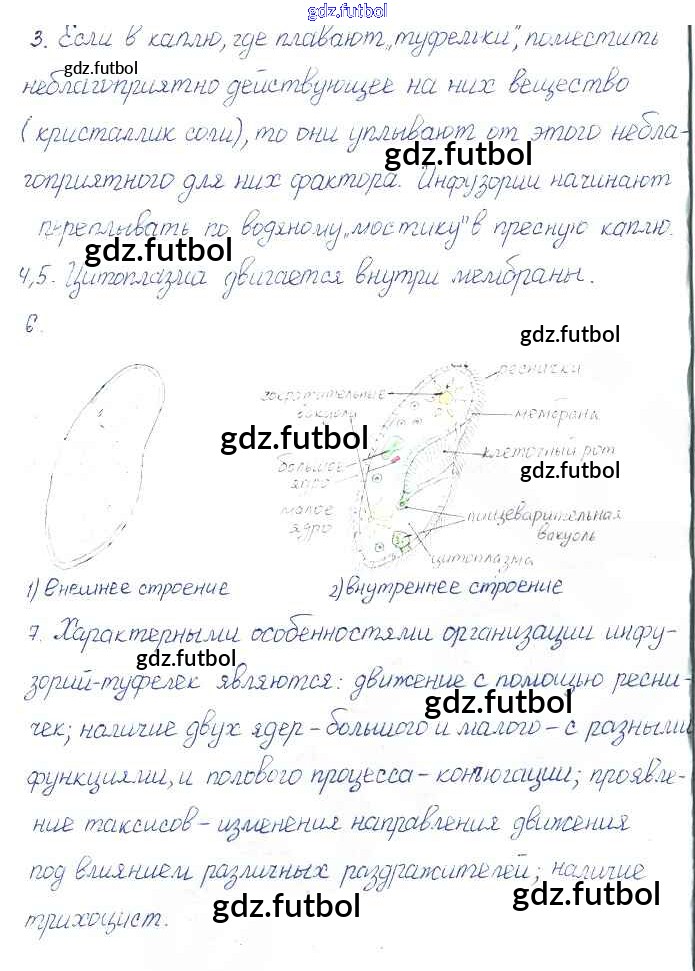 gdz.futbol
3. Если в каплю, где плавают „туфельки", поместить
gdz.futbol
неблагоприятно действующее на них вещество
(кристаллик соли), то они уплывают от этого небла-
gdz.futbol
гоприятного для них фактора. Инфузории начинают
переплывать по водяному „мостику" в пресную каплю.
gdz.futbol
4,5. Цитоплазма двигается внутри мембраны.
6.
gdz.futbol
реснички
сократительные
вакуоли
мембрана
gdz.futbol
клеточный рот
большое
ядро
gdz.futbol
малое
ядро
пищеварительная
вакуоль
цитоплазма
1) Внешнее строение
2) внутреннее строение
7. Характерными особенностями организации инфу-
gdz.futbol
зорий-туфелек являются: движение с помощью ресни-
gdz.futbol
чек; наличие двух ядер - большого и малого - с разными
функциями, и полового процесса - конъюгации; проявле-
ние таксисов - изменения направления движения
под влиянием различных раздражителей; наличие
gdz.futbol
gdz.futbol
трихоцист.